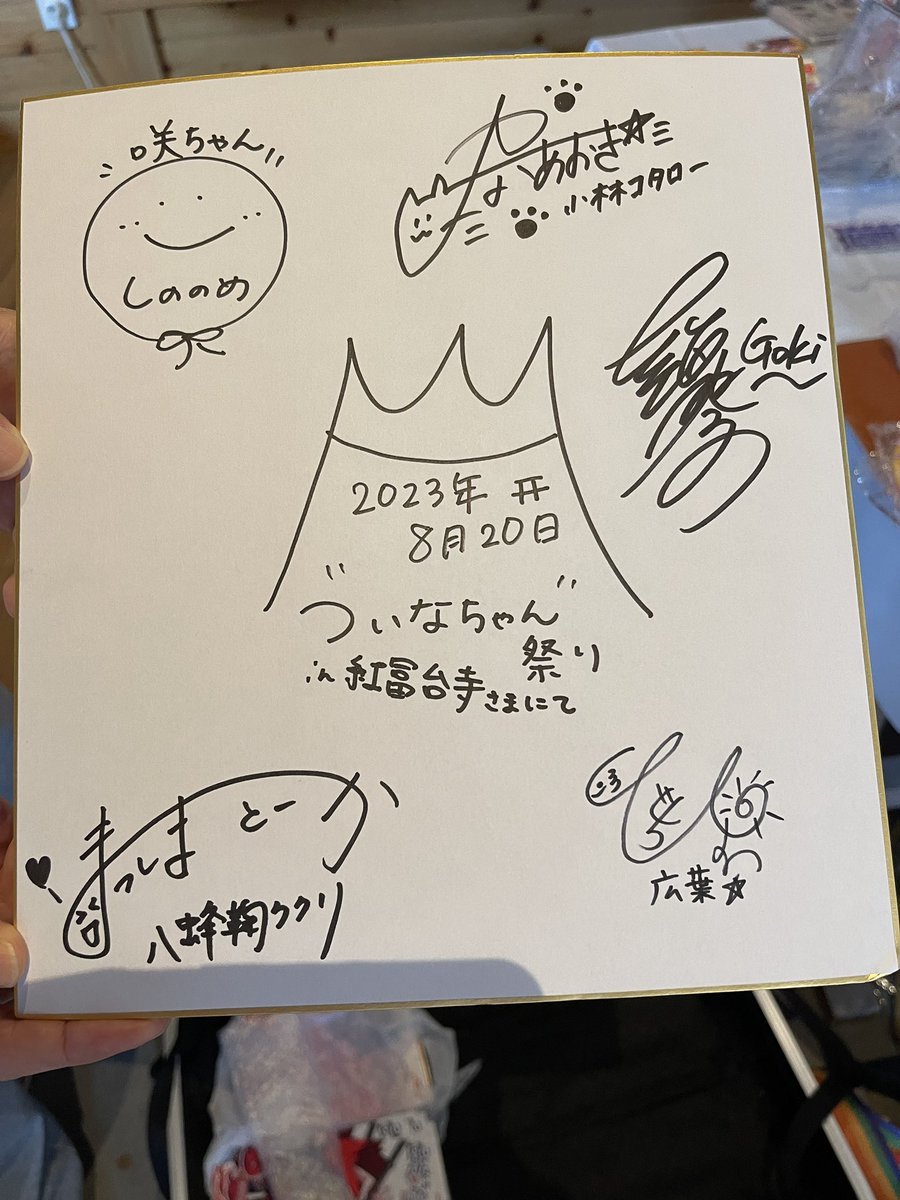 咲ちゃん
しののめ
小林コタロー
Goki
2023年
8月20日
"ついなちゃん"
祭り
in 紅冨台寺さまにて
まっしま とーか
八蜂鞠ククリ
広葉☆